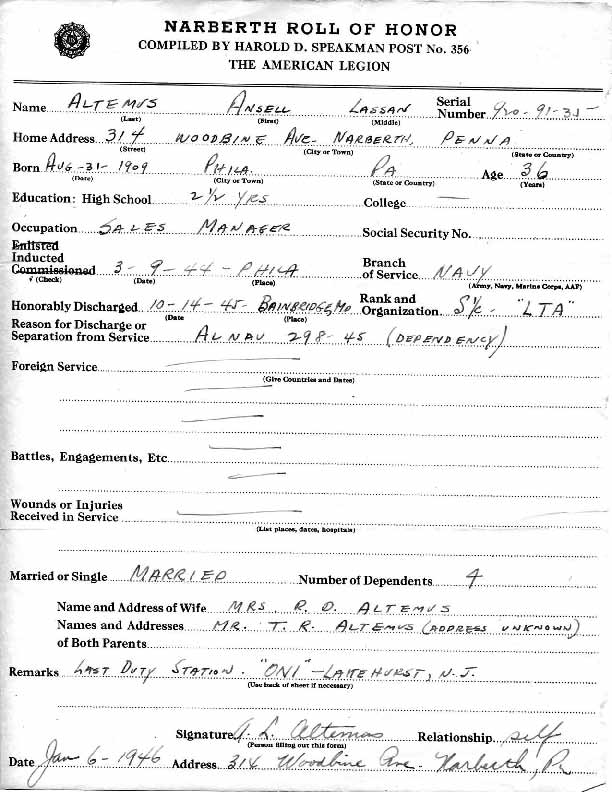 NARBERTH ROLL OF HONOR
COMPILED BY HAROLD D. SPEAKMAN POST No. 356
THE AMERICAN LEGION
Name ALTEMUS ANSELL LASSAN Serial Number 920-91-35
(Last) (First) (Middle)
Home Address 314 WOODBINE AVE. NARBERTH, PENNA
(Street) (City or Town) (State or Country)
Born AUG-31-1909 PHILA. PA Age 36
(Date) (City or Town) (State or Country) (Years)
Education: High School 2 1/2 YRS College —
Occupation SALES MANAGER Social Security No.
Enlisted
Inducted
Commissioned 3-9-44-PHILA Branch of Service NAVY
√ (Check) (Date) (Place) (Army, Navy, Marine Corps, AAF)
Honorably Discharged 10-14-45- BAINBRIDGE, MD Rank and Organization S1/c- "LTA"
(Date (Place)
Reason for Discharge or
Separation from Service ALNAV 298-45 (DEPENDENCY)
Foreign Service —
(Give Countries and Dates)
Battles, Engagements, Etc. —
Wounds or Injuries
Received in Service —
(List places, dates, hospitals)
Married or Single MARRIED Number of Dependents 4
Name and Address of Wife MRS. R. D. ALTEMUS
Names and Addresses MR. T. R. ALTEMUS (ADDRESS UNKNOWN)
of Both Parents
Remarks LAST DUTY STATION. "ONI"-LAKEHURST, N.J.
(Use back of sheet if necessary)
Signature A. L. Altemus Relationship self
(Person filling out this form)
Date Jan 6-1946 Address 314 Woodbine Ave. Narberth, Pa